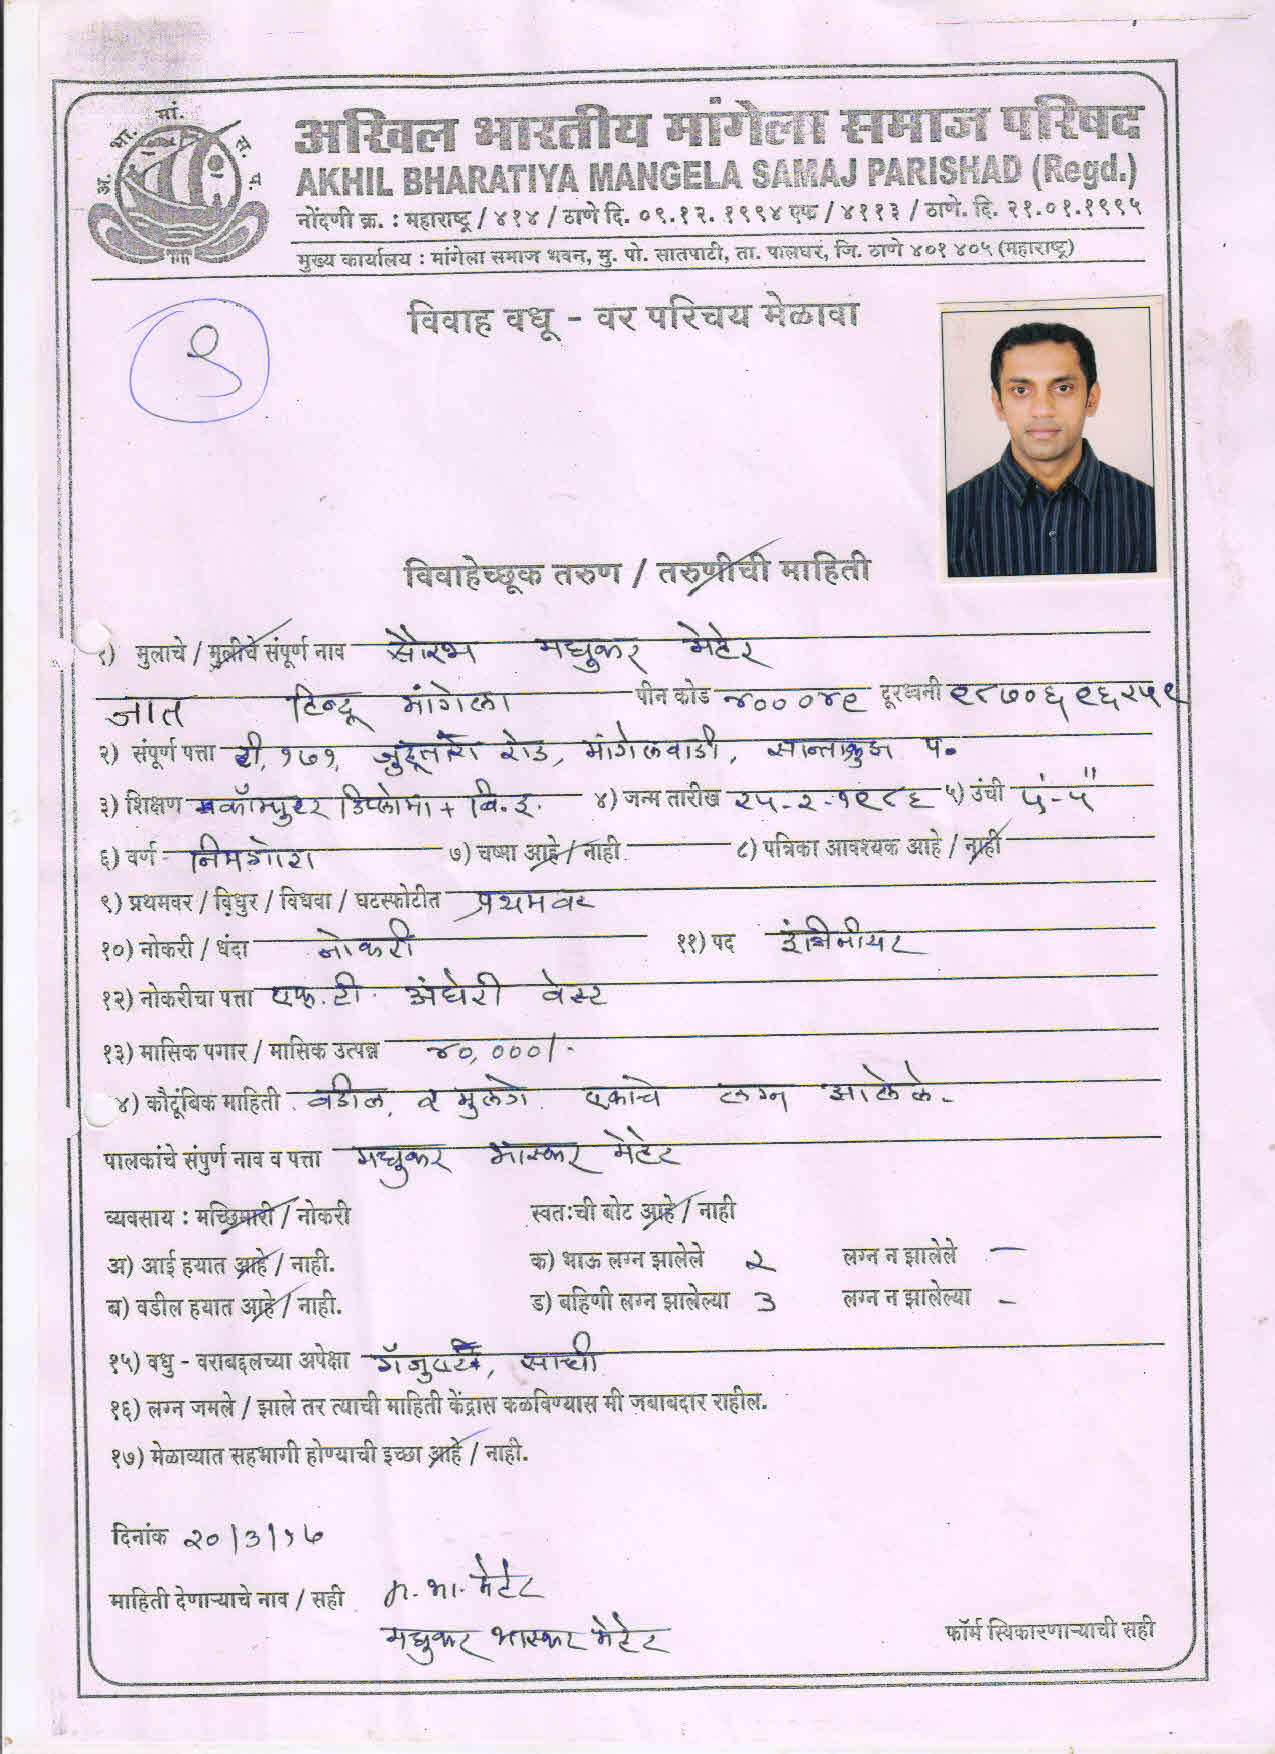 अ. भा. मां. स. प.
अखिल भारतीय मांगेला समाज परिषद
AKHIL BHARATIYA MANGELA SAMAJ PARISHAD (Regd.)
नोंदणी क्र. : महाराष्ट्र / ४१४ / ठाणे दि. ०९.१२. १९९४ एफ / ४११३ / ठाणे. दि. २१.०१.१९९५
मुख्य कार्यालय : मांगेला समाज भवन, मु. पो. सातपाटी, ता. पालघर, जि. ठाणे ४०१ ४०५ (महाराष्ट्र)
विवाह वधू - वर परिचय मेळावा
विवाहेच्छूक तरुण / तरुणीची माहिती
१) मुलाचे / मुलीचे संपूर्ण नाव सौरभ मधुकर मेहेर
जात हिन्दू मांगेला पीन कोड ४०००४९ दूरध्वनी
२) संपूर्ण पत्ता टी, १७१, जुहूतारा रोड, मांगेलवाडी, सान्ताक्रुझ प.
३) शिक्षण कॉम्प्युटर डिप्लोमा + बि.इ. ४) जन्म तारीख २५-२-१९८६ ५) उंची ५'-५"
६) वर्ण निमगोरा ७) चष्मा आहे / नाही ८) पत्रिका आवश्यक आहे / नाही
९) प्रथमवर / विधुर / विधवा / घटस्फोटीत प्रथमवर
१०) नोकरी / धंदा नोकरी ११) पद इंजिनीयर
१२) नोकरीचा पत्ता एफ. टी. अंधेरी वेस्ट
१३) मासिक पगार / मासिक उत्पन्न ४०,०००/-
४) कौटूंबिक माहिती वडील, २ मुलगे एकाचे लग्न झालेले-
पालकांचे संपुर्ण नाव व पत्ता मधुकर भास्कर मेहेर
व्यवसाय : मच्छिमारी / नोकरी स्वतःची बोट आहे / नाही
अ) आई हयात आहे / नाही. क) भाऊ लग्न झालेले २ लग्न न झालेले -
ब) वडील हयात आहे / नाही. ड) बहिणी लग्न झालेल्या 3 लग्न न झालेल्या -
१५) वधु - वराबद्दलच्या अपेक्षा ग्रॅजुएट, साधी
१६) लग्न जमले / झाले तर त्याची माहिती केंद्रास कळविण्यास मी जबाबदार राहील.
१७) मेळाव्यात सहभागी होण्याची इच्छा आहे / नाही.
दिनांक २०/3/१७
माहिती देणाऱ्याचे नाव / सही म. भा. मेहेर
मधुकर भास्कर मेहेर
फॉर्म स्विकारणाऱ्याची सही